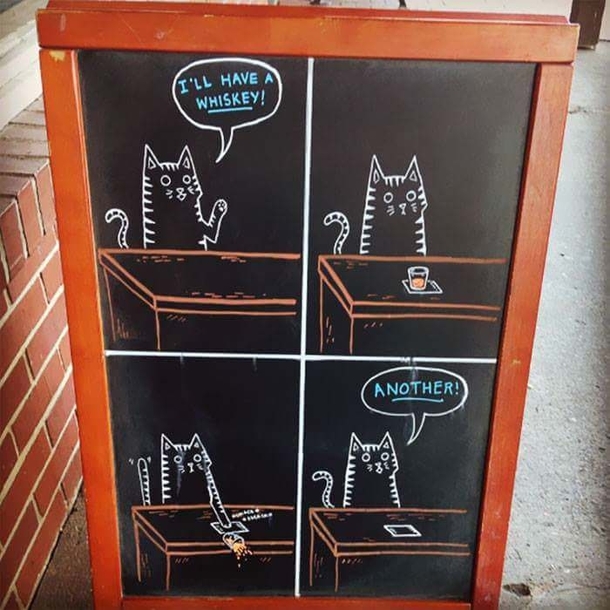 I'LL HAVE A
WHISKEY!
ANOTHER!